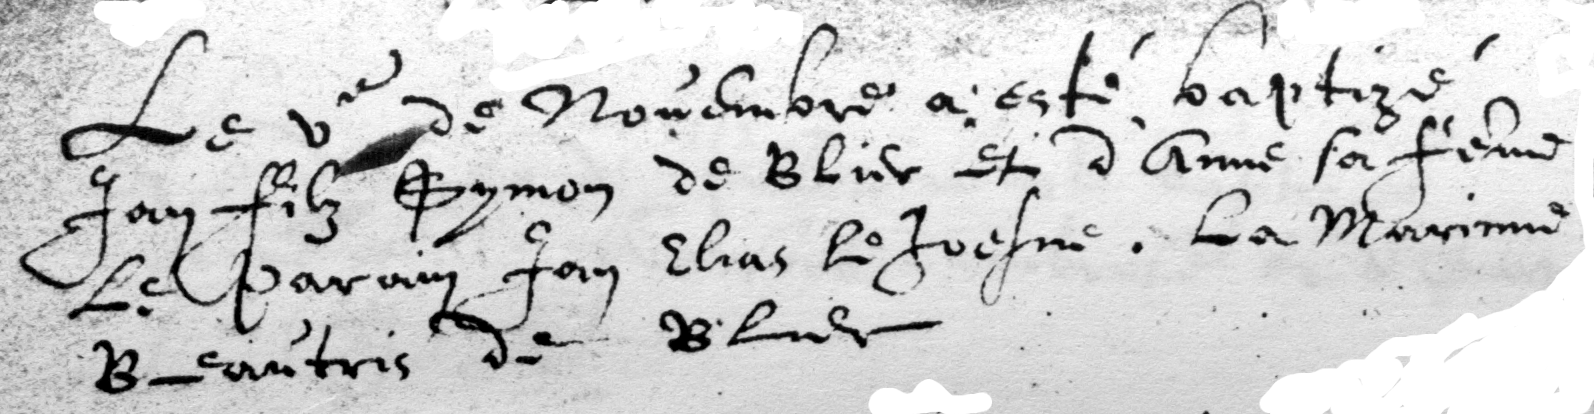 Le ve de Novembre a esté baptizé
Jan filz Symon de Blier et d'Anne sa feme
Le parain Jan Elias le Joesne. La Marinne
Beautris de Blier